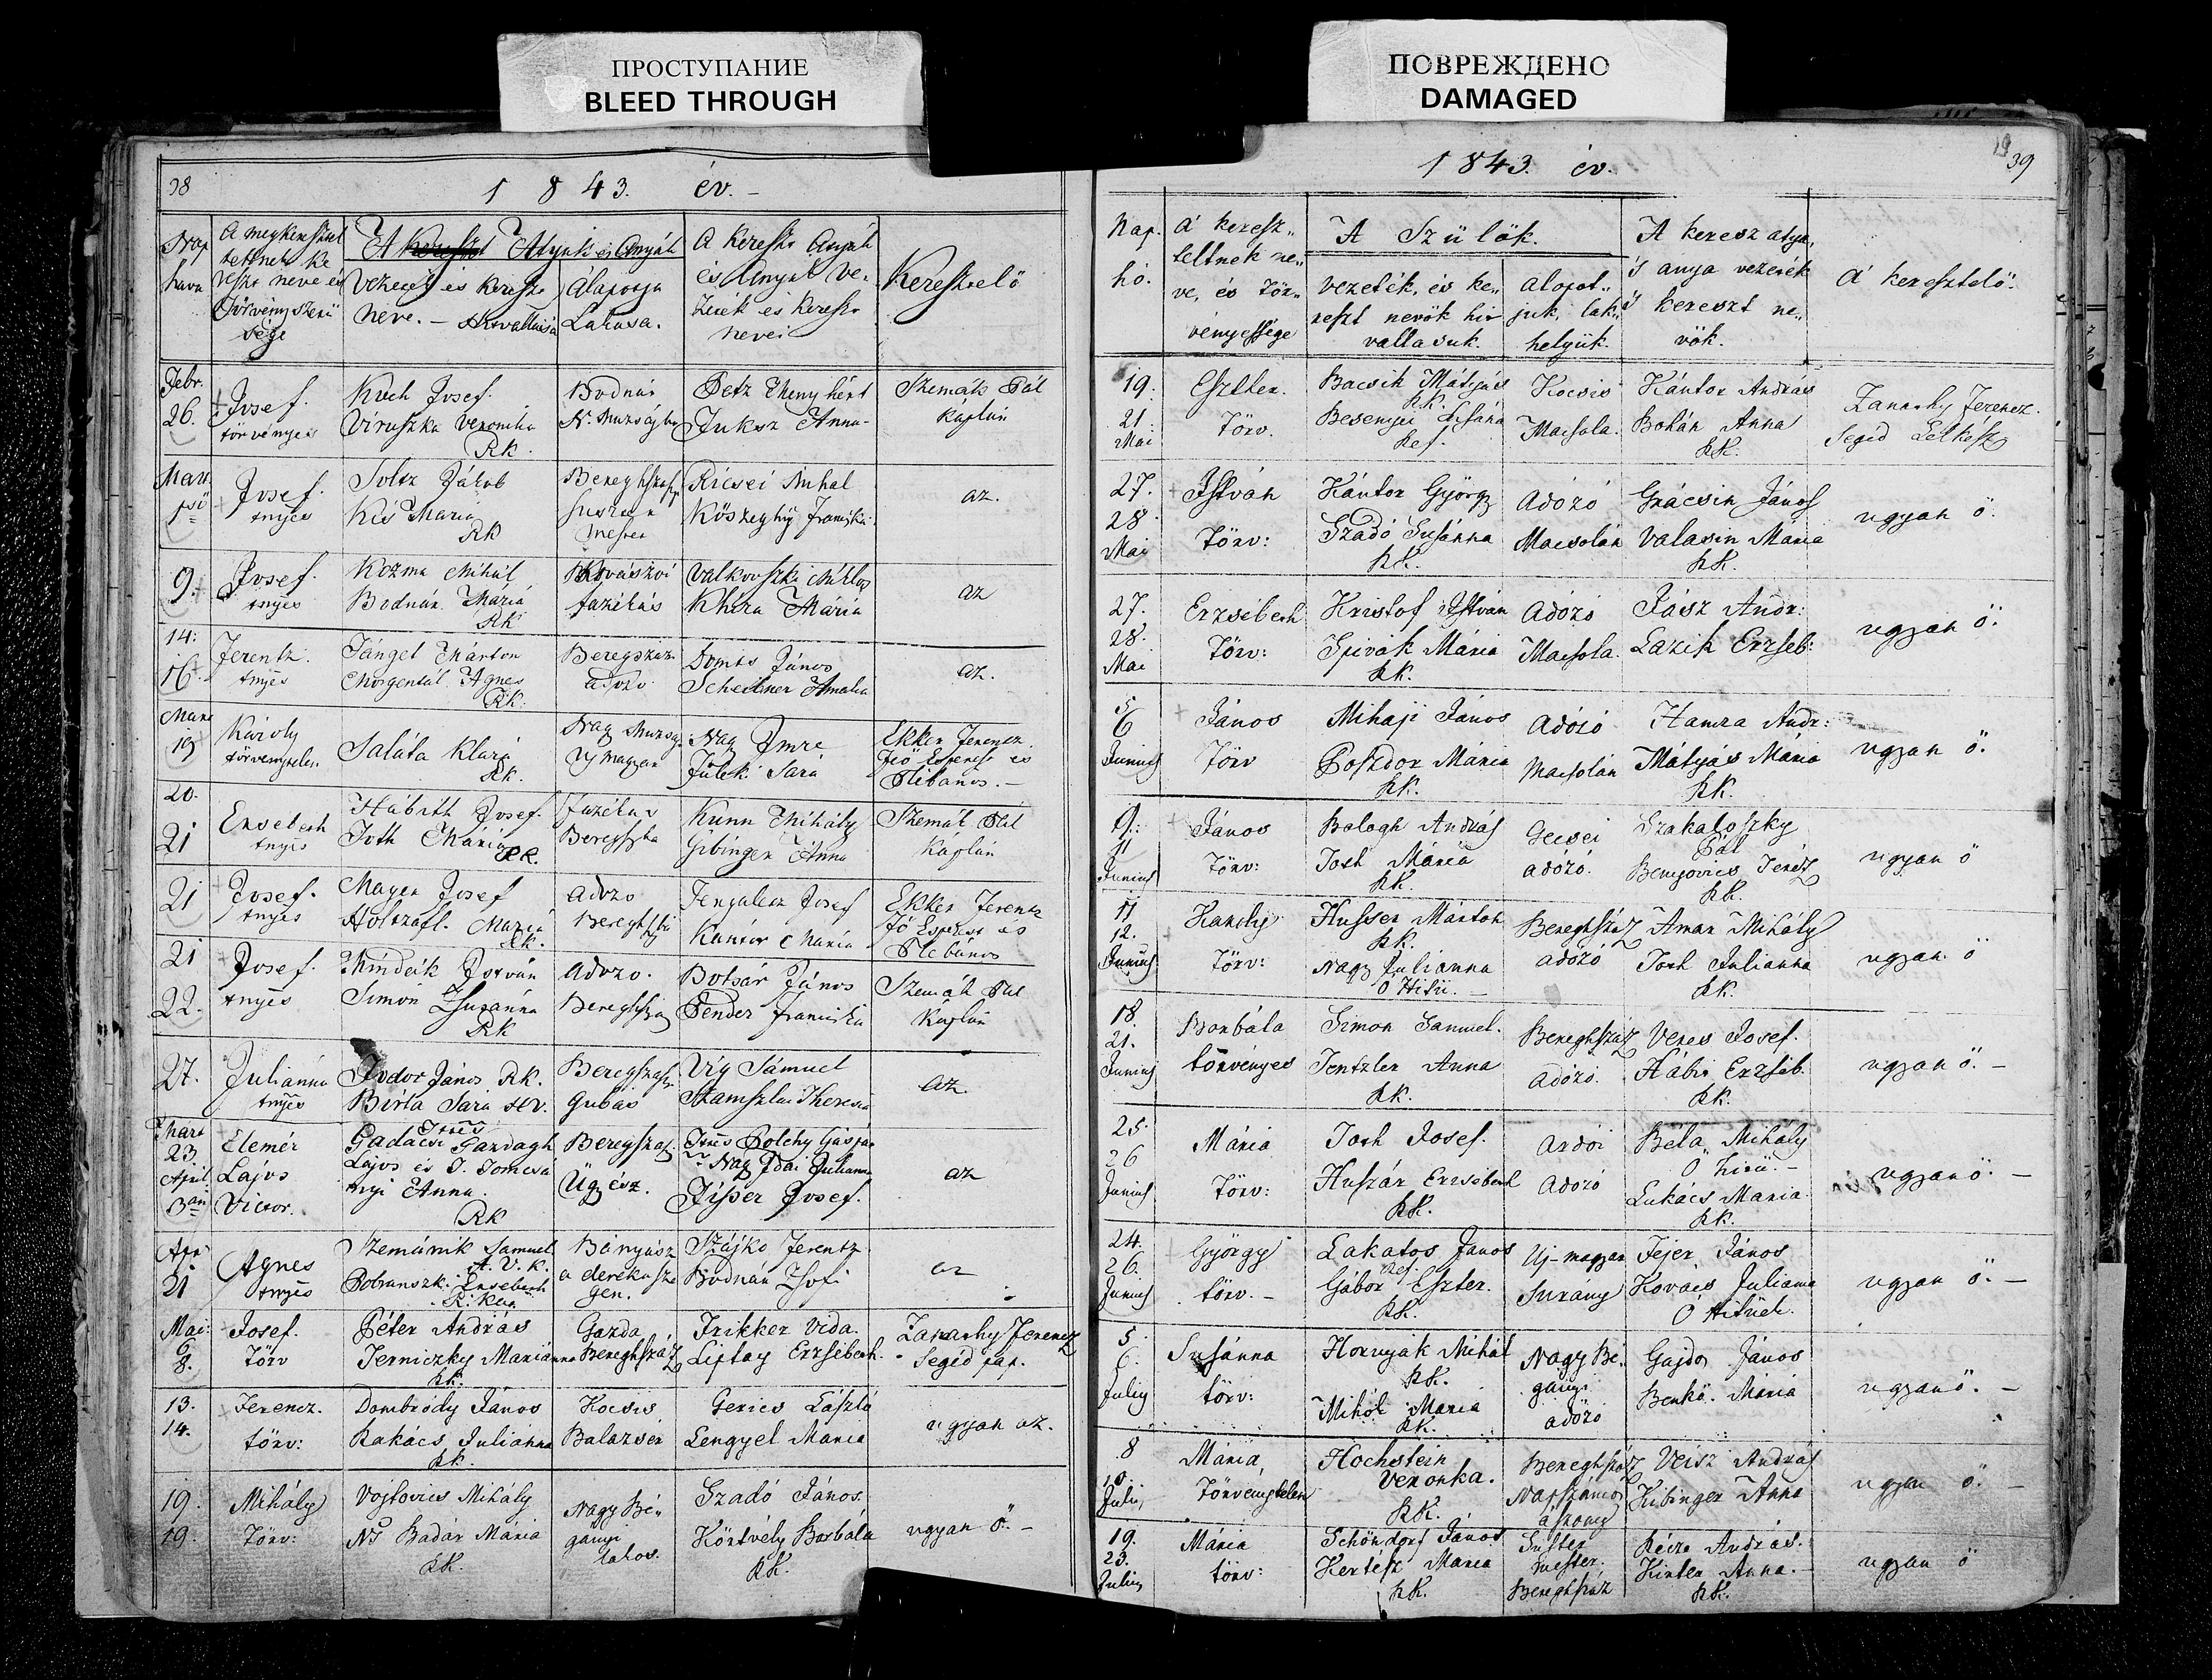 ПРОСТУПАНИЕ
BLEED THROUGH
ПОВРЕЖДЕНО
DAMAGED
38
1843. év.
Nap
hava
A megkeresztel
tettnek ke
reszt neve és
Törvényszerü
sége
A Atyák és Anyák
Vezeték és Kereszt
neve. –
Alapotja
Lakása.
A Kereszt Atyák
és Anyák Ve-
zeték és Kereszt
nevei
Keresztelö
Febr.
26.
Josef.
törvényes
Koch Josef.
Viruszka Veronika
RK.
Bodnár
N. Muzsaly
Petz
Juksz Anna
Szemák Pál
Kaplán
Mart.
1ső
Josef.
tnyes
Soltz Jákob
Kis Maria
RK
Bereghszász
Suszter
mester
Ricsei Mihal
Köszeghy Franciska
az.
9.
Josef.
tnyes
Kozma Mihál
Bodnár Mariá
RK
Kovászói
fazékás
Valkovszki Miklos
Khira Mária
az
14.
16.
Ferentz.
tnyes
Jángel Márton
Morgentál Agnes
RK.
Beregszász
adozo
Domis János
Scheitner Amalia
az.
Mart
19
Károly
törvenytelen
Saláta Klara
RK.
Nagy Muzsaly
Uj magyar
Nagy Imre
Füleki Sara
Ekker Ferencz.
Fő Esperest és
Plébános. –
20.
21
Ersebeth
tnyes
Hábith Josef.
Toth Mária
RK.
fazékas
Beregszász
Kunn Mihály
Gibinger Anna
Szemák Pál
Káplán
21
Josef.
tnyes
Mayer Josef
Holtzapfl. Mariá
RK.
Adozo
Bereghsz
Tengulicz Josef
Kántor Maria
Ekker Ferentz
Fő Esperest és
Plebános
21
22.
Josef.
tnyes
Mindák István
Simon Zsusánna
RK
Adozo.
Bereghsz
Botsár János
Pender Franciska
Szemák Pál
Káplán
27.
Juliánna
tnyes
Fodor János RK.
Birta Sara HV.
Beregszász
gubás
Vig Sámuel
Stanszlai Theresia
az.
Mart
23
April
3án
Elemér
Lajos
Victor.
Gadácsi Gazdagh
Lajos és T. Tomcsá
nyi Anna.
RK
Beregszász
Ügyész.
Polchy Gáspár
Nagy Idai Julianna
Fisser Josef.
az
Apr
21
Agnes
tnyes
Szemánik Samuel
A. V. K.
Dobranszki Ersebeth
R. Kat.
Bányász
a derekasze
gen.
Szájko Ferentz
Bodnár Zsofi
az
Mai
6
8.
Josef.
törv
Péter András
Jerniczky Mariánna
RK.
Gazda
Bereghszász
Frikker Vida.
Liptay Erzsébeth.
Zanathy Ferencz
Segéd pap.
13.
14.
Ferencz.
törv:
Dombródy János
Rakács Juliánna
RK.
Kocsis
Balazsér
Gerics László
Lengyel Mária
ugyan az.
19.
19.
Mihály
Törv:
Vojtovics Mihály
NS Badár Mária
RK.
Nagy Bé-
gányi
lakos.
Szadó János.
Körtvély Borbála
RK.
ugyan ő. –
1843. év.
39
Nap.
hó.
A' keresz-
teltnek ne-
ve, és tör-
vényessége
A Szülők.
vezeték, és ke-
reszt nevök hit
vallasuk.
alapot-
juk, lak-
helyük.
A kereszt atya,
's anya vezeték
's kereszt ne-
vök.
A' keresztelő.
19.
21
Mai
Eszther.
Törv.
Bacsik Mátyás
RK.
Besenyei Susána
Ref.
Kocsis
Macsola.
Kántor András
Bohán Anna
RK.
Zanathy Ferencz.
Segéd Lelkész
27.
28
Mai
István
Törv:
Kántor György
Szadó Susánna
RK.
Adózó
Macsolán
Grácsin János
Valasin Mária
RK.
ugyan ő.
27.
28.
Mai
Erzsébeth
Törv:
Kristof István
Spivák Mária
RK.
Adózó
Macsola.
Jász Andr:
Lazik Erzseb:
ugyan ő.
5
6
Junius
János
Törv
Mihaji János
Poszdor Mária
RK.
Adózó
Macsolán
Hamza Andr:
Mátyás Mária
RK.
ugyan ő.
9.
11
Junius
János
Törv:
Balogh András
Toth Mária
RK.
Gecsei
adózó.
Szakaloszky
Pál
Benyovics Teréz
RK.
ugyan ő
11
12.
Junius
Karoly
Törv:
Huszer Márton
RK.
Nagy Julianna
Ó Hitü. –
Bereghszász
adózó
Aman Mihály
Toth Julianna
RK.
ugyan ő
18.
21.
Junius
Borbála
törvényes
Simon Samuel.
Tentzler Anna
RK.
Bereghszász
Adózó.
Veres Josef.
Hábit Erzseb.
RK.
ugyan ő. –
25.
26
Junius
Mária
Törv:
Toth Josef.
Huszár Erzsébeth
RK.
Ardói
Adózó
Bela Mihály
Ó hitü. –
Lukács Maria
RK.
ugyan ő. –
24.
26.
Junius
György
törv. –
Lakatos János
Ref.
Gábor Eszter.
RK.
Uj-magyar
Surány
Fejer János
Kovács Julianna
Ó Hitüek.
ugyan ő. –
5.
6.
Julius
Susánna
törv:
Hornyák Mihál
RK.
Mihók Maria
RK.
Nagy Bé-
gányi
adózó
Gajdos János
Benkö Mária
ugyan ő. –
8
10.
Julius
Mária,
Törvénytelen
Hochstein
Veronka.
RK.
Bereghszász
Napszámos
aszony
Veisz András
Kibinger Anna
ugyan ő. –
19.
23.
Julius
Mária
törv:
Schöndorf János
Kertész Maria
RK.
Suster
mester.
Bereghszász
Récze András.
Kinter Anna. –
RK.
ugyan ő